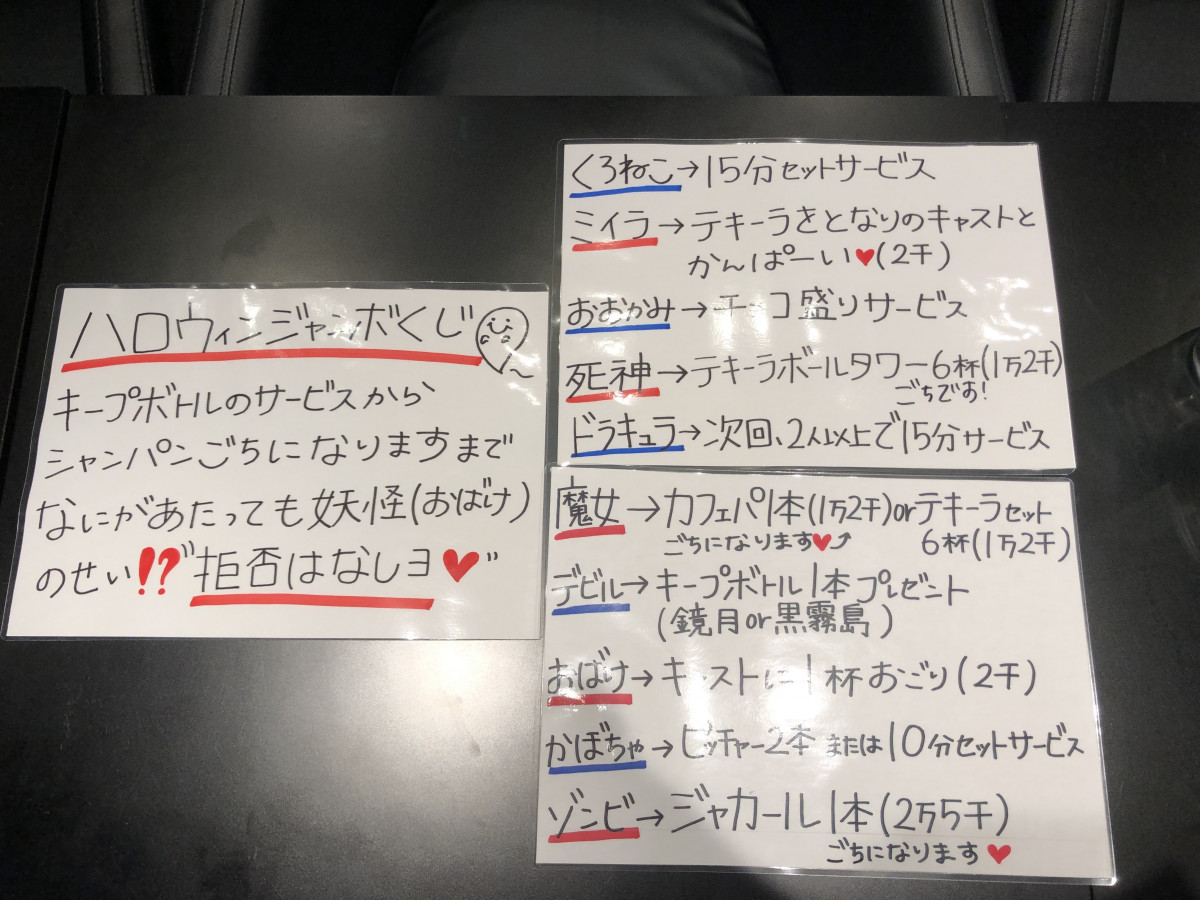 ハロウィンジャンボくじ
キープボトルのサービスから
シャンパンごちになりますまで
なにがあたっても妖怪(おばけ)
のせい!?"拒否はなしヨ♥"
くろねこ→15分セットサービス
ミイラ→テキーラをとなりのキャストと
かんぱーい♥(2千)
おおかみ→チョコ盛りサービス
死神→テキーラボールタワー6杯(1万2千)
ごちです!
ドラキュラ→次回、2人以上で15分サービス
魔女→カフェパ1本(1万2千)orテキーラセット
ごちになります♥⤴ 6杯(1万2千)
デビル→キープボトル1本プレゼント
(鏡月or黒霧島)
おばけ→キャストに1杯おごり(2千)
かぼちゃ→ピッチャー2本または10分セットサービス
ゾンビ→ジャカール1本(2万5千)
ごちになります♥